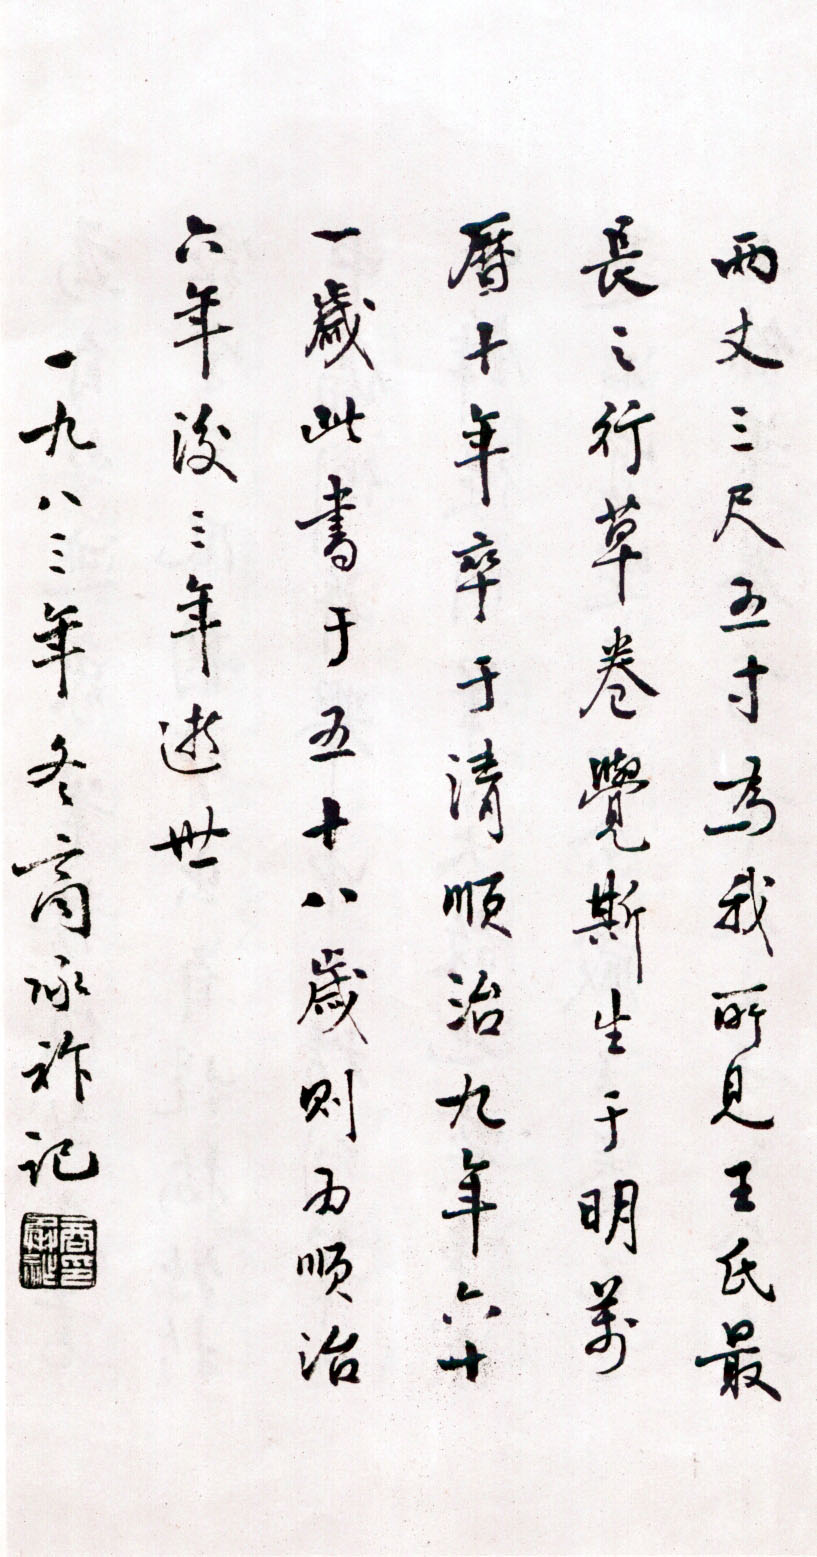 兩丈三尺五寸為我所見王氏最
長之行草卷覺斯生于明萬
曆十年卒于清順治九年六十
一歲此書于五十八歲則為順治
六年後三年逝世
一九八三年冬商承祚記
商承祚印